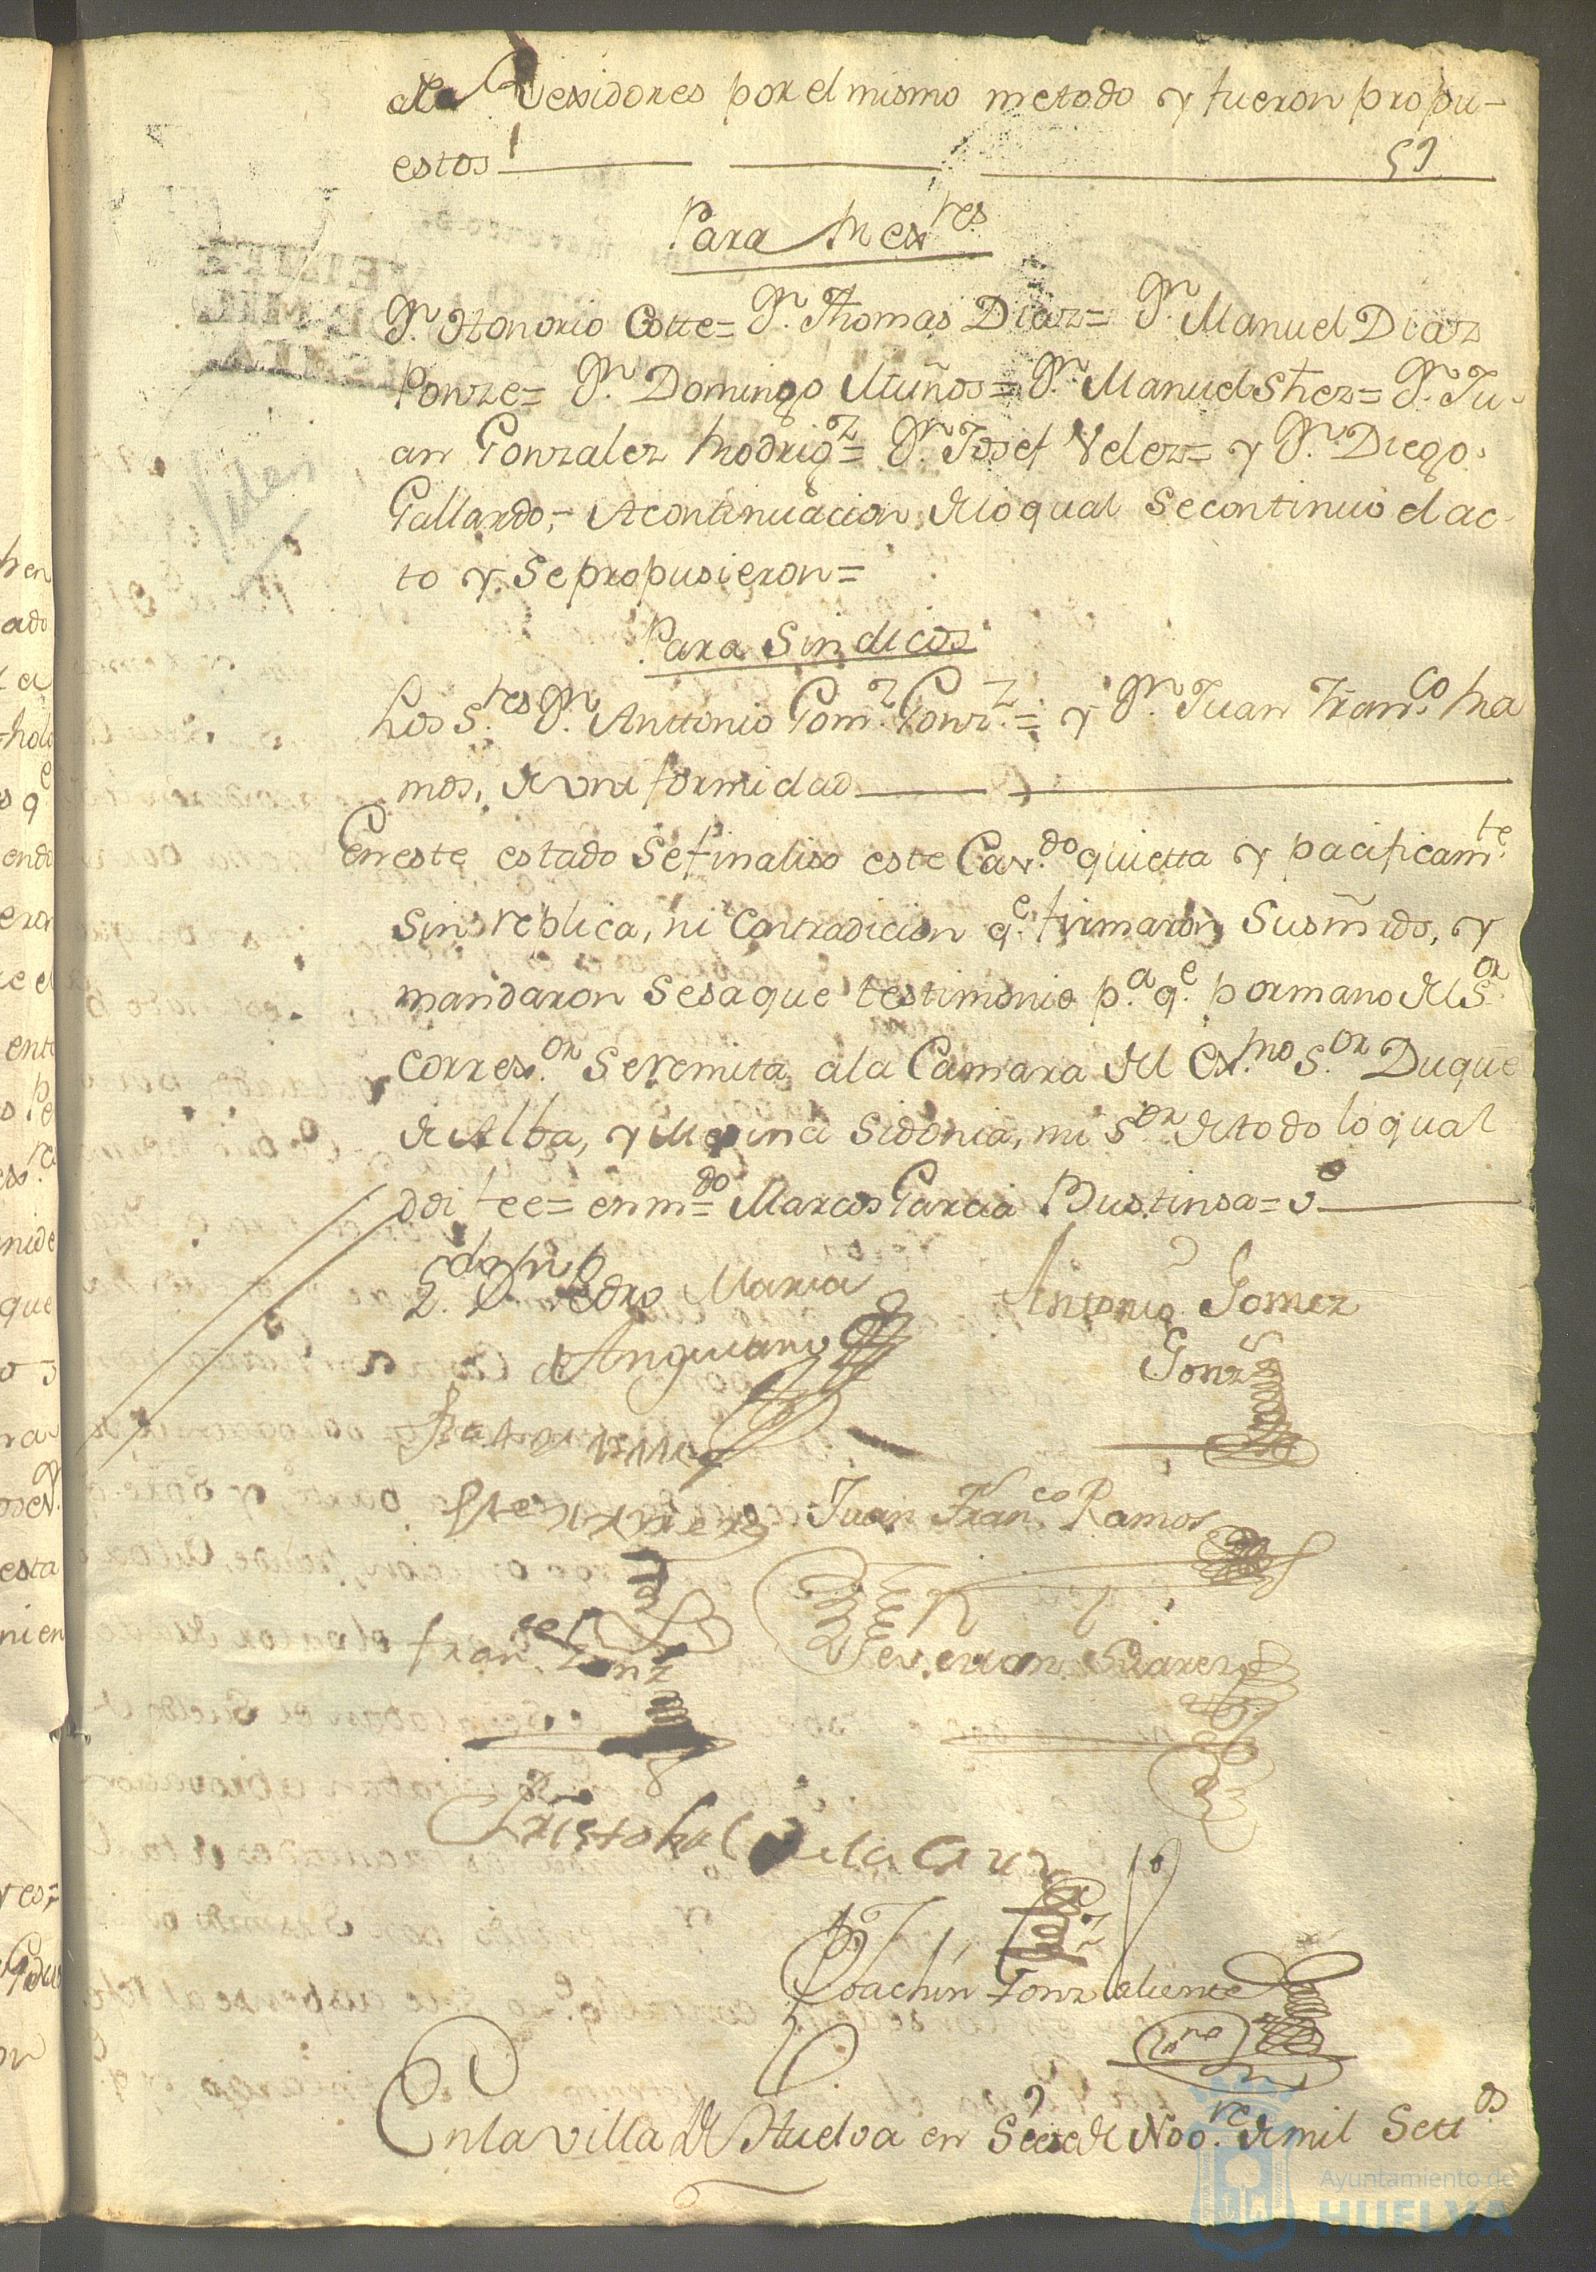 de Rexidores por el mismo metodo y fueron propu-
estos
59
Para Rex.res
Dn. Honorio Cotte= Dn. Thomas Diaz= Dn. Manuel Diaz
Ponze= Dn. Domingo Muños= Dn. Manuel Shez= Dn. Ju-
an Gonzalez Rodrigz= Dn. Josef Velez= y Dn. Diego
Gallardo,- A continuacion de lo qual se continuó el ac-
to y se propusieron=
Para Sindicos
Los S.res Dn. Anttonio Gom.z Gonz.z= y Dn. Juan Fran.co Ra
mos, de uniformidad
En este estado se finaliso este Cav.do quietta y pacificam.te
sin replica, ni contradicion q.e firmaron sus mrds, y
mandaron se saque testimonio p.a q.e por mano del S.or
correx.or se remita a la Camara del Ex.mo S.or Duque
de Alba, y Medina Sidonia, mi S.or de todo lo qual
doi fee= enm.do Marcos Garcia Bustinsa= v.e
L.do Dn. Pedro Maria
de Anguiano
Antonio Gomez
Gonz.z
Juan Fran.co Ramos
Fran.co Gonz
Severian Suarez
Cristobal de la Cruz
Joachin Gonz Valiente
En la villa de Huelva en Seis de Nov.re de mil Sett.os
Ayuntamiento de
HUELVA